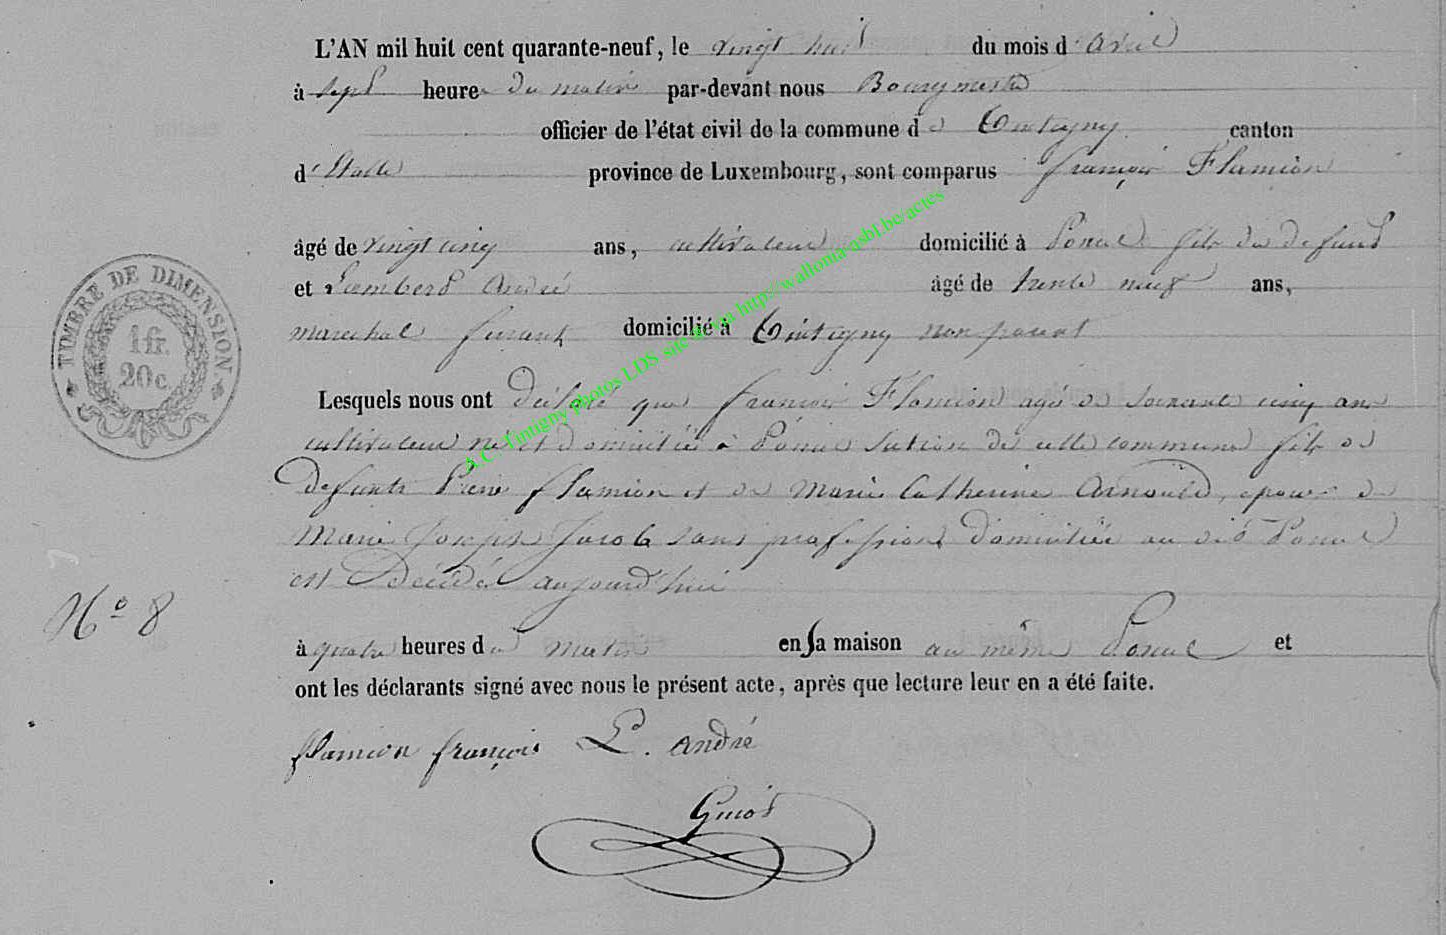 L'AN mil huit cent quarante-neuf, le vingt huit du mois d'avril
à sept heures du matin par-devant nous Bourgmestre
officier de l'état civil de la commune de Tintigny canton
d'Etalle province de Luxembourg, sont comparus françois Flamion
âgé de vingt cinq ans, cultivateur domicilié à Poncel fils du defunt
et Lambert André âgé de trente neuf ans,
marechal ferant domicilié à Tintigny non parent
Lesquels nous ont déclaré que françois Flamion agé de soixante cinq ans
cultivateur né et domicilié à Poncel section de cette commune fils de
defunts Pierre flamion et de Marie Catherine Arnould, epoux de
Marie Joseph Jacob sans profession domiciliée au dit Poncel
est décédé aujourd'hui
à quatre heures du matin en sa maison au même Poncel et
ont les déclarants signé avec nous le présent acte, après que lecture leur en a été faite.
flamion françois L. andré
Guiot
N° 8
TIMBRE DE DIMENSION
1 fr.
20 c.
A.C. Tintigny photos LDS site & via http://wallonia-asbl.be/actes